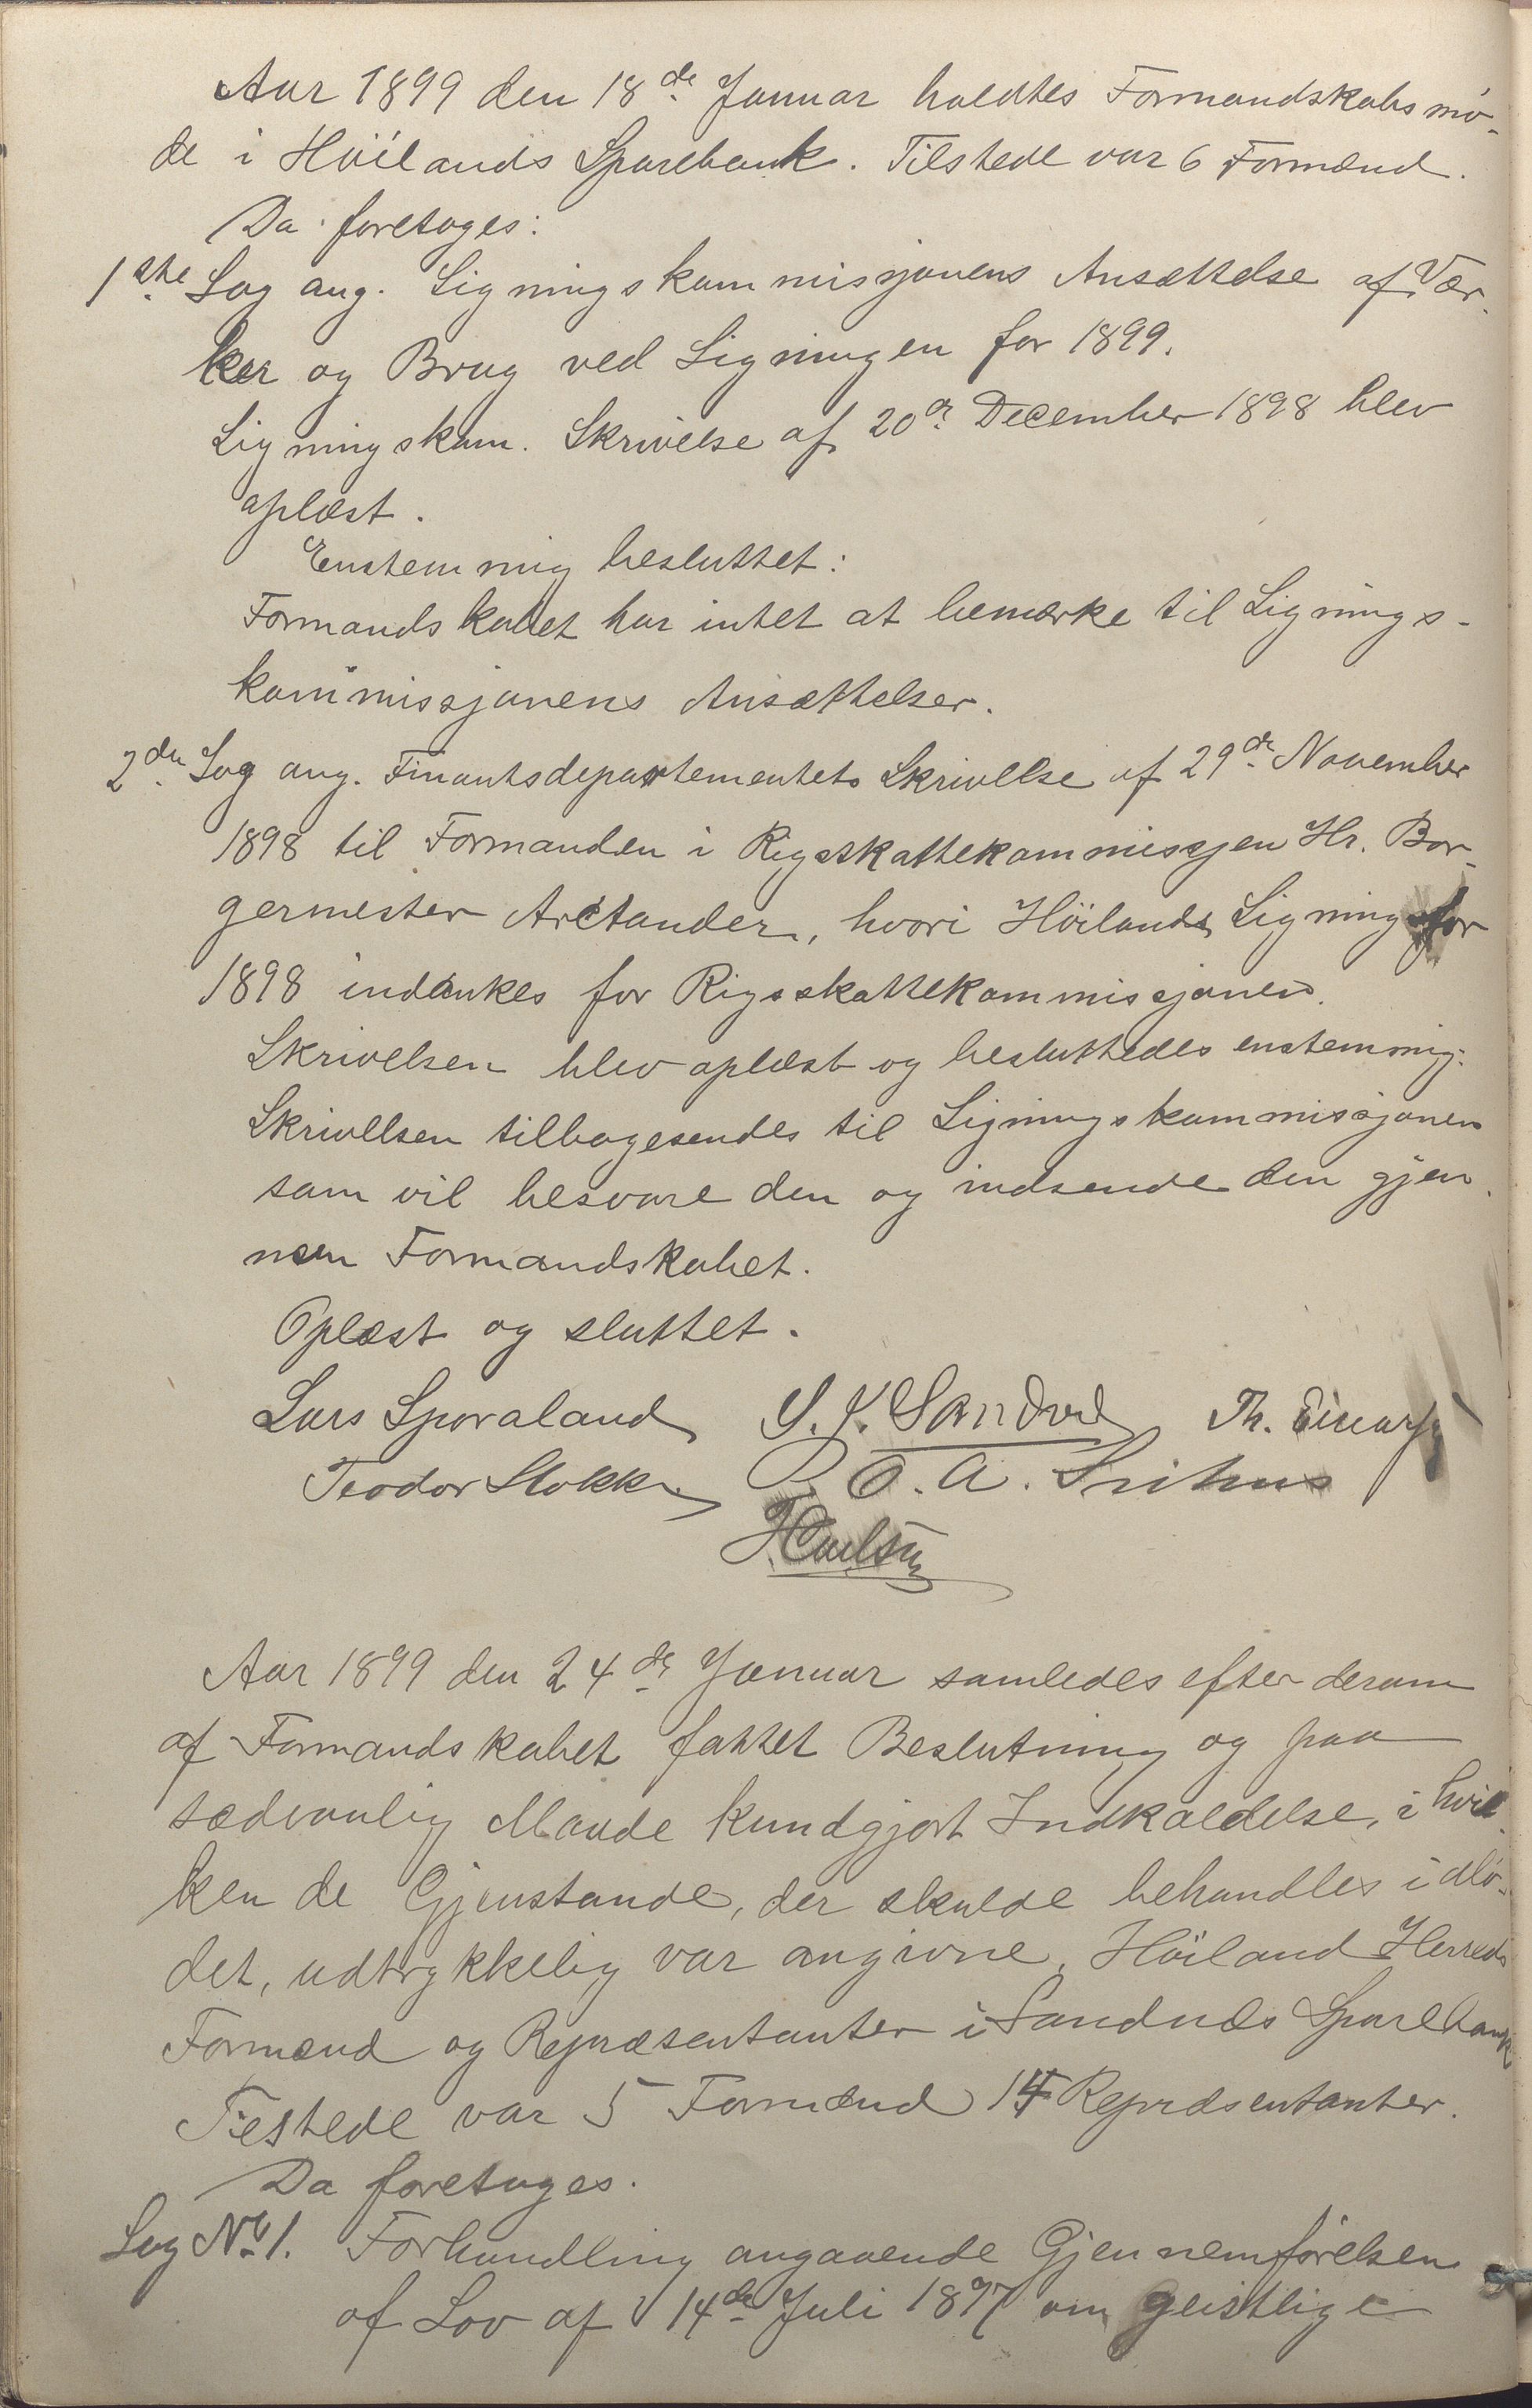 Aar 1899 den 18de Januar holdtes Formandskabsmö-
de i Höilands Sparebank. Tilstede var 6 Formænd.
Da foretoges:
1ste Sag ang. Ligningskommissjonens Ansættelse af Vær-
ker og Brug ved Ligningen for 1899.
Ligningskom. Skrivelse af 20de December 1898 blev
oplæst.
Enstemmig besluttet:
Formandskabet har intet at bemærke til Lignings-
kommissjonens Ansættelser.
2den Sag ang. Finantsdepartementets Skrivelse af 29de November
1898 til Formanden i Rigsskattekommissjen Hr. Bor-
germester Arctander, hvori Höilands Ligning for
1898 indankes for Rigsskattekommissjonen.
Skrivelsen blev oplæst og besluttedes enstemmig:
Skrivelsen tilbagesendes til Ligningskommissjonen
som vil besvare den og indsende den gjen-
nem Formandskabet.
Oplæst og sluttet.
Lars Sporaland S. K. Sandve Th.
Teodor Stokke O. A.
Aar 1899 den 24de Januar samledes efter derom
af Formandskabet fattet Beslutning og paa
sædvanlig Maade kundgjort Indkaldelse, i hvil-
ken de Gjenstande, der skulde behandles i Mö-
det, udtrykkelig var angivne, Höiland Herreds
Formænd og Repræsentanter i Sandnes Sparebank
Tilstede var 5 Formænd 14 Repræsentanter.
Da foretoges.
Sag No 1. Forhandling angaaende Gjennemförelsen
af Lov af 14de Juli 1897 om geistlige